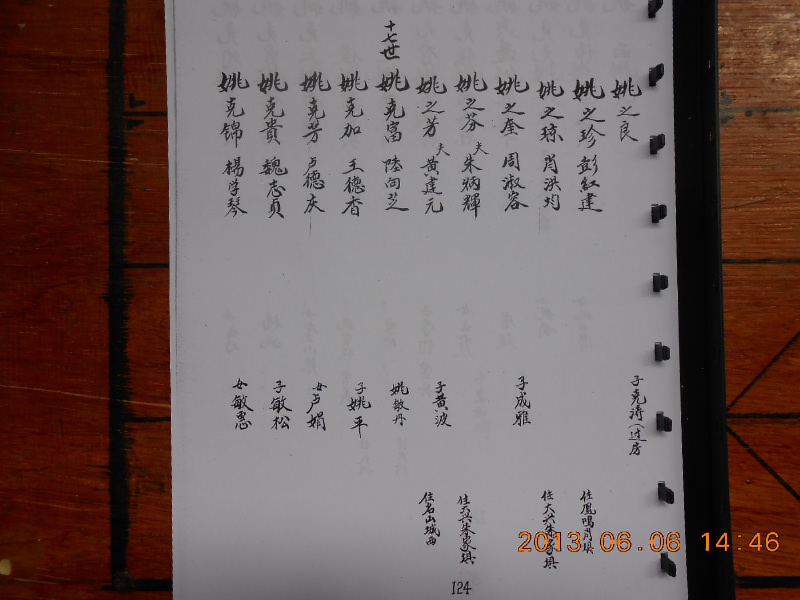 姚之良 子克濤(过房
姚之珍 彭紅建 住鳳鳴肖壩
姚之琼 肖洪均 住大兴朱家壩
姚之奎 周淑容 子成雅
姚之芬 夫朱炳輝 住大兴朱家壩
姚之芳 夫黄建元 子黄波 住名山城西
十七世
姚克富 陸向芝 姚敏丹
姚克加 王德香 子姚平
姚克芳 卢德庆 女卢娟
姚克貴 魏志貞 子敏松
姚克锦 楊学琴 女敏惠
124
2013.06.06 14:46